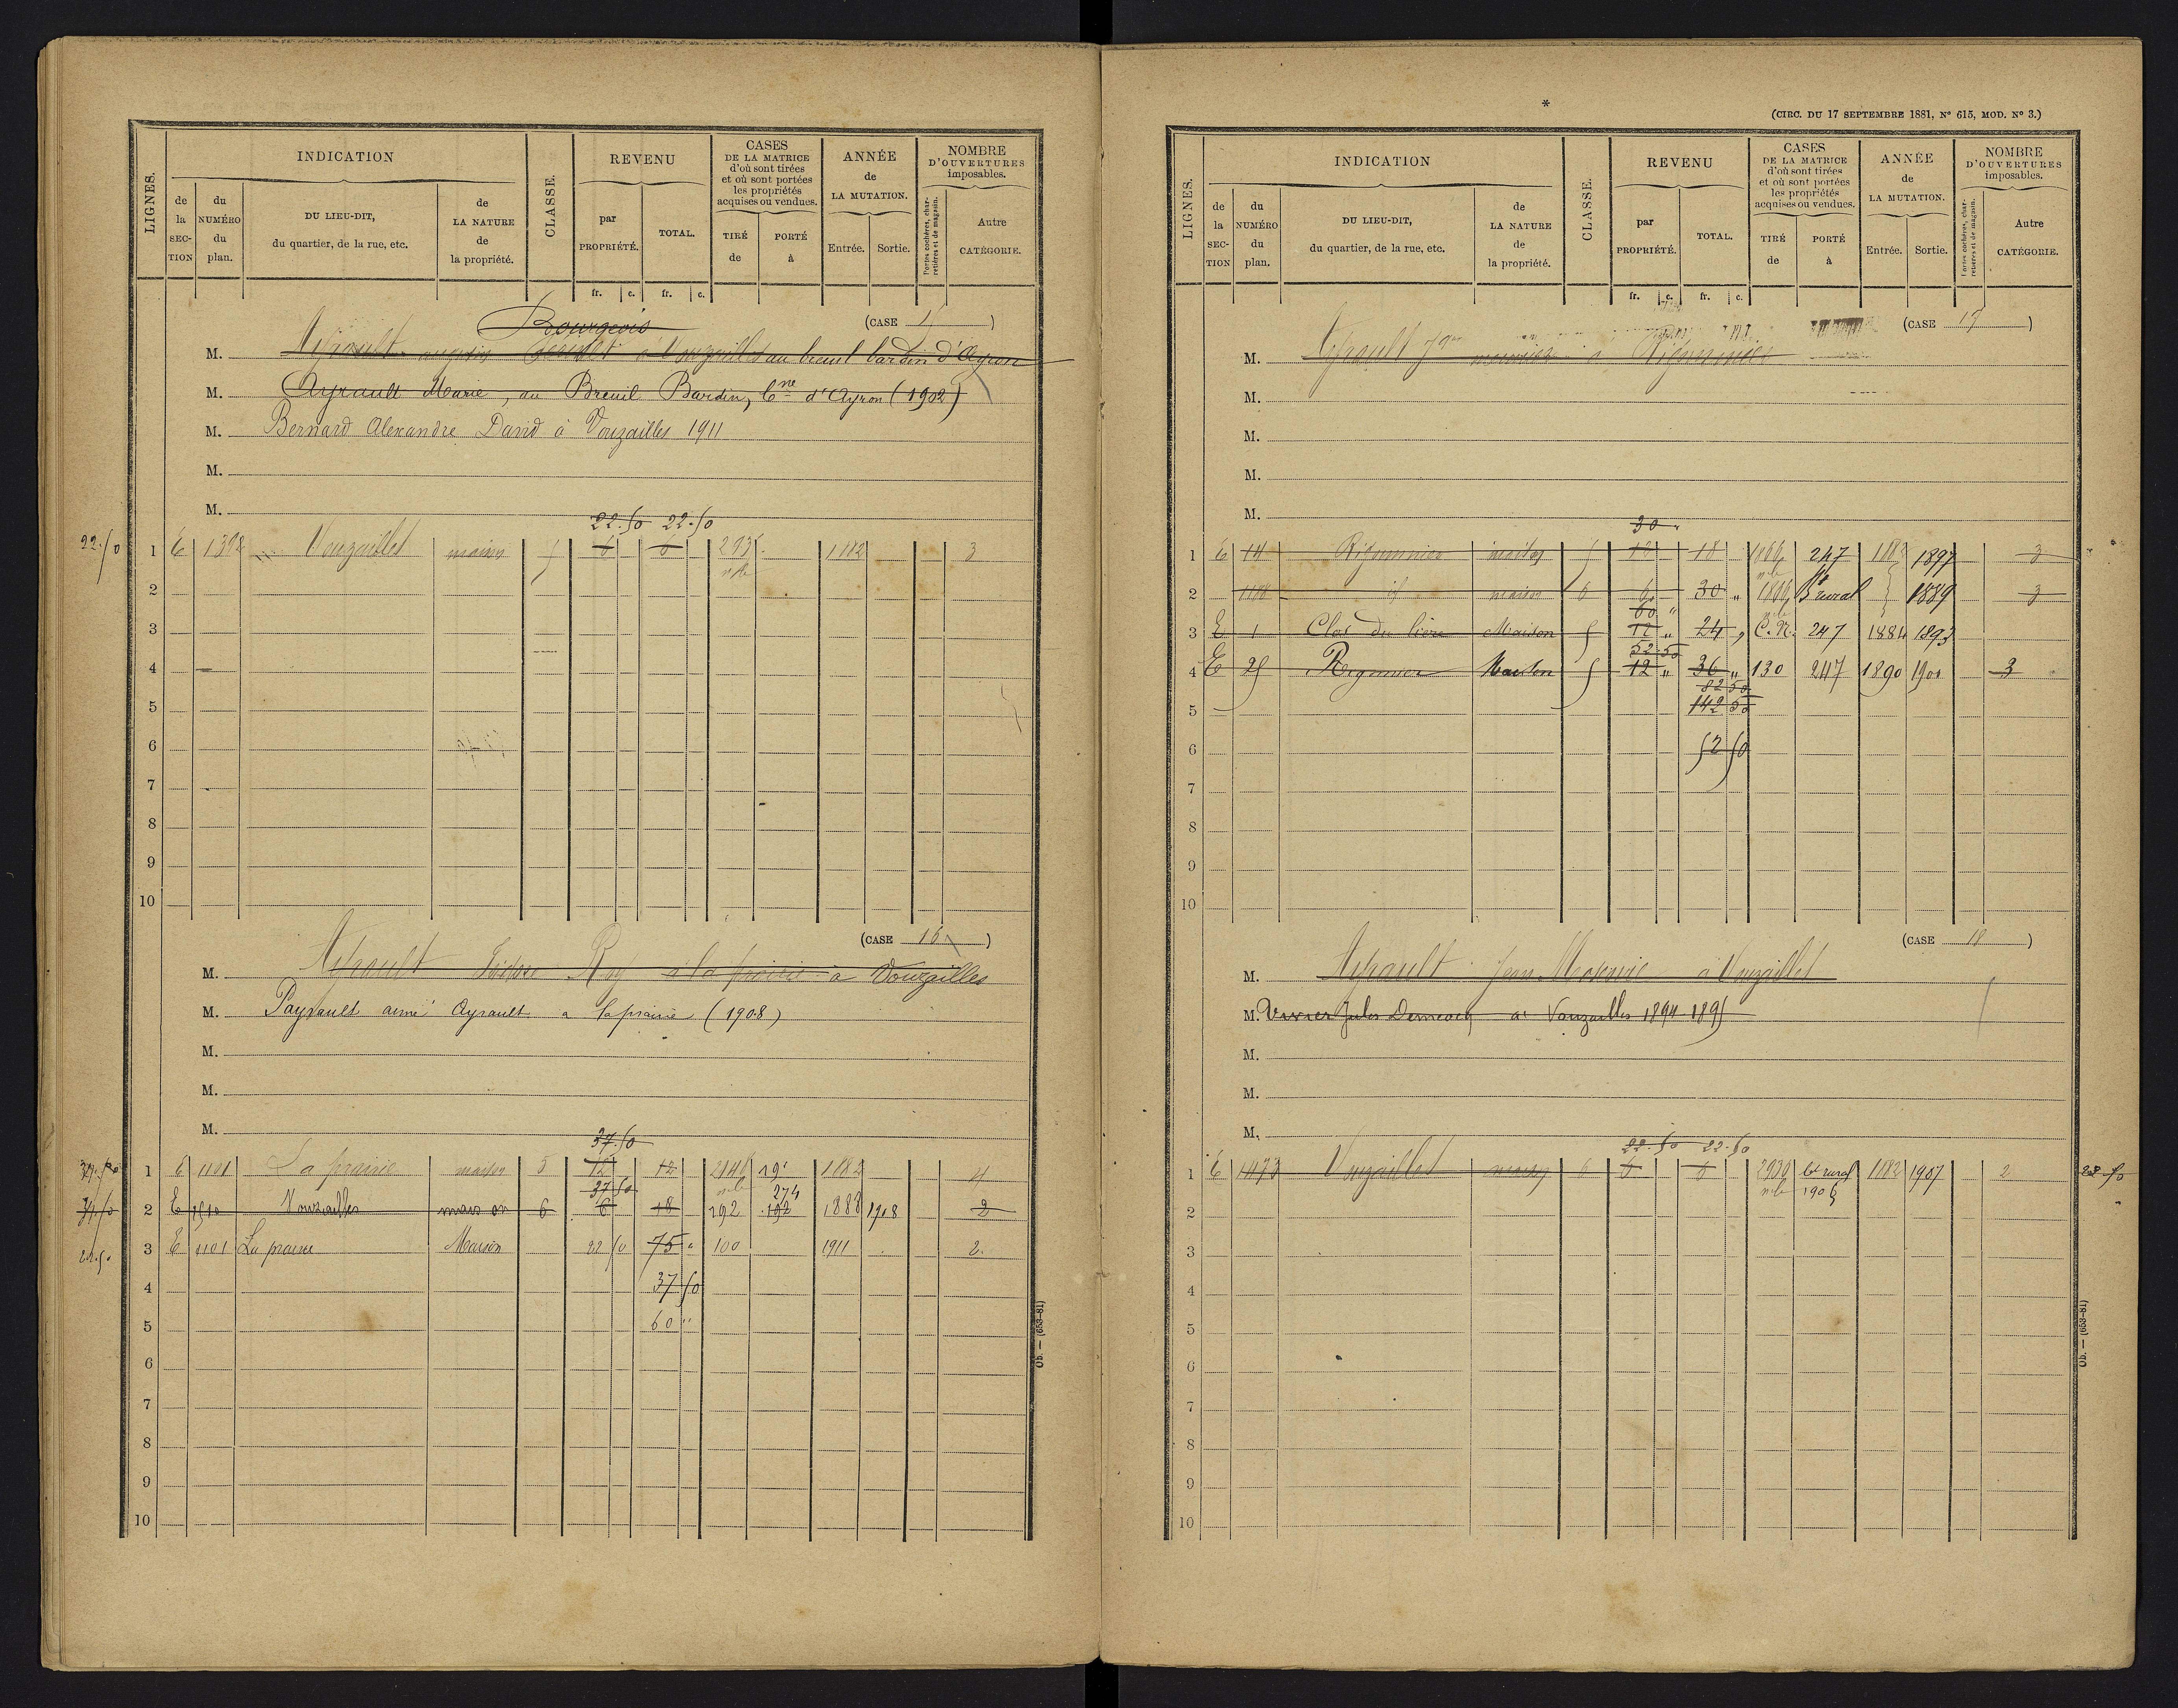 INDICATION
de la SECTION
du NUMÉRO du plan.
DU LIEU-DIT, du quartier, de la rue, etc.
de LA NATURE de la propriété.
LIGNES.
CLASSE.
REVENU
par PROPRIÉTÉ.
TOTAL.
CASES DE LA MATRICE d'où sont tirées et où sont portées les propriétés acquises ou vendues.
TIRÉ de
PORTÉ à
ANNÉE de LA MUTATION.
Entrée. Sortie.
NOMBRE D'OUVERTURES imposables.
Portes cochères, charretières et de magasin.
Autre CATÉGORIE.
fr. c. fr. c.
Bourgeois
(CASE )
M. Ayrault à Vouzailles au breuil bardin d'Ayron
M. Ayrault Marie, au Breuil Bardin, Cne d'Ayron (1902)
M. Bernard Alexandre David à Vouzailles 1911
M.
M.
22.50 22.50
22.50 1 E 1392 Vouzailles maison 5 6 6 1882 3
2
3
4
5
6
7
8
9
10
(CASE 16)
M. Ayrault Roy à la prairie à Vouzailles
M. Payrault aimé Ayrault a la prairie (1908)
M.
M.
M.
37.50
37.50 1 E 1101 La prairie maison 5 12 12 1882 4
37 50
274
2 E Vouzailles maison 6 6 18 192 192 1888 1908 2
22.50 3 E 1101 La prairie Maison 22 50 75 " 100 1911 2
4 37 50
5 60 "
6
7
8
9
10
Ob. — (653-81)
*
(CIRC. DU 17 SEPTEMBRE 1881, Nº 615, MOD. Nº 3.)
INDICATION
de la SECTION
du NUMÉRO du plan.
DU LIEU-DIT, du quartier, de la rue, etc.
de LA NATURE de la propriété.
LIGNES.
CLASSE.
REVENU
par PROPRIÉTÉ.
TOTAL.
CASES DE LA MATRICE d'où sont tirées et où sont portées les propriétés acquises ou vendues.
TIRÉ de
PORTÉ à
ANNÉE de LA MUTATION.
Entrée. Sortie.
NOMBRE D'OUVERTURES imposables.
Portes cochères, charretières et de magasin.
Autre CATÉGORIE.
fr. c. fr. c.
(CASE 17)
M. Ayrault à
M.
M.
M.
M.
30 "
1 E 14 maison 5 18 247 1882 1897 3
2 id maison 6 6 30 " Bt rural 1889 3
60 "
3 E 1 Clos du Maison 5 12 " 24 " C.N. 247 1884 1893
52 50
4 E 25 Maison 5 12 " 36 " 130 247 1890 1901 3
82 50
5 142 50
6 52 50
7
8
9
10
(CASE 18)
M. Ayrault Jean à Vouzailles
M. Vivier Jules à Vouzailles 1894 1895
M.
M.
M.
22.50 22.50
1 E 1473 Vouzailles maison 6 6 6 Bt rural 1882 1907 2
1906
2
3
4
5
6
7
8
9
10
Ob. — (653-81)